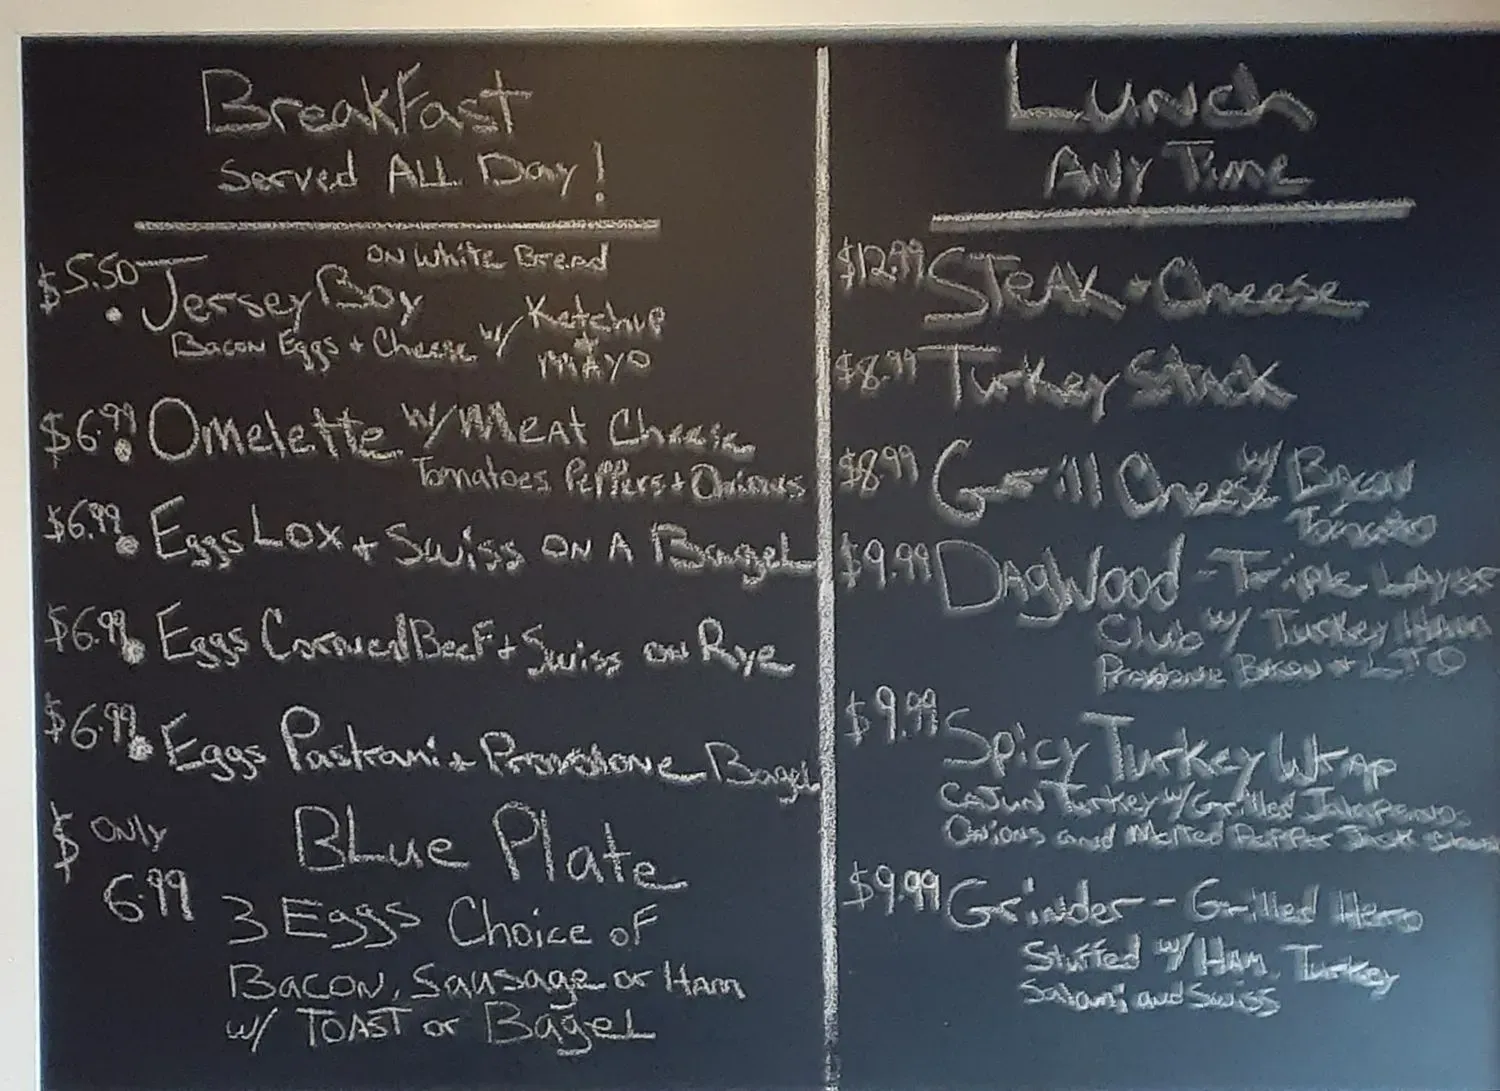 BreakFast
Served ALL Day!
ON White Bread
$5.50 Jersey Boy
Bacon Eggs + Cheese w/ Ketchup
+
MAYO
$6.99 Omelette w/ Meat Cheese
Tomatoes Peppers + Onions
$6.99 Eggs Lox + Swiss ON A Bagel
$6.99 Eggs Corned Beef + Swiss on Rye
$6.99 Eggs Pastrami + Provolone Bagel
$ ONLY
6.99
BLue Plate
3 Eggs Choice oF
Bacon, Sausage or Ham
w/ TOAST or Bagel
Lunch
ANY Time
$12.99 STeAK + Cheese
$8.99 Turkey Stack
$8.99 Grill Cheese w/ Bacon
Tomato
$9.99 DagWood - Triple Layer
Club w/ Turkey Ham
Provolone Bacon + LTO
$9.99 Spicy Turkey Wrap
Cajun Turkey w/ Grilled Jalapenos
Onions and Melted Pepper Jack
$9.99 Grinder - Grilled Hero
Stuffed w/ Ham, Turkey
Salami and Swiss